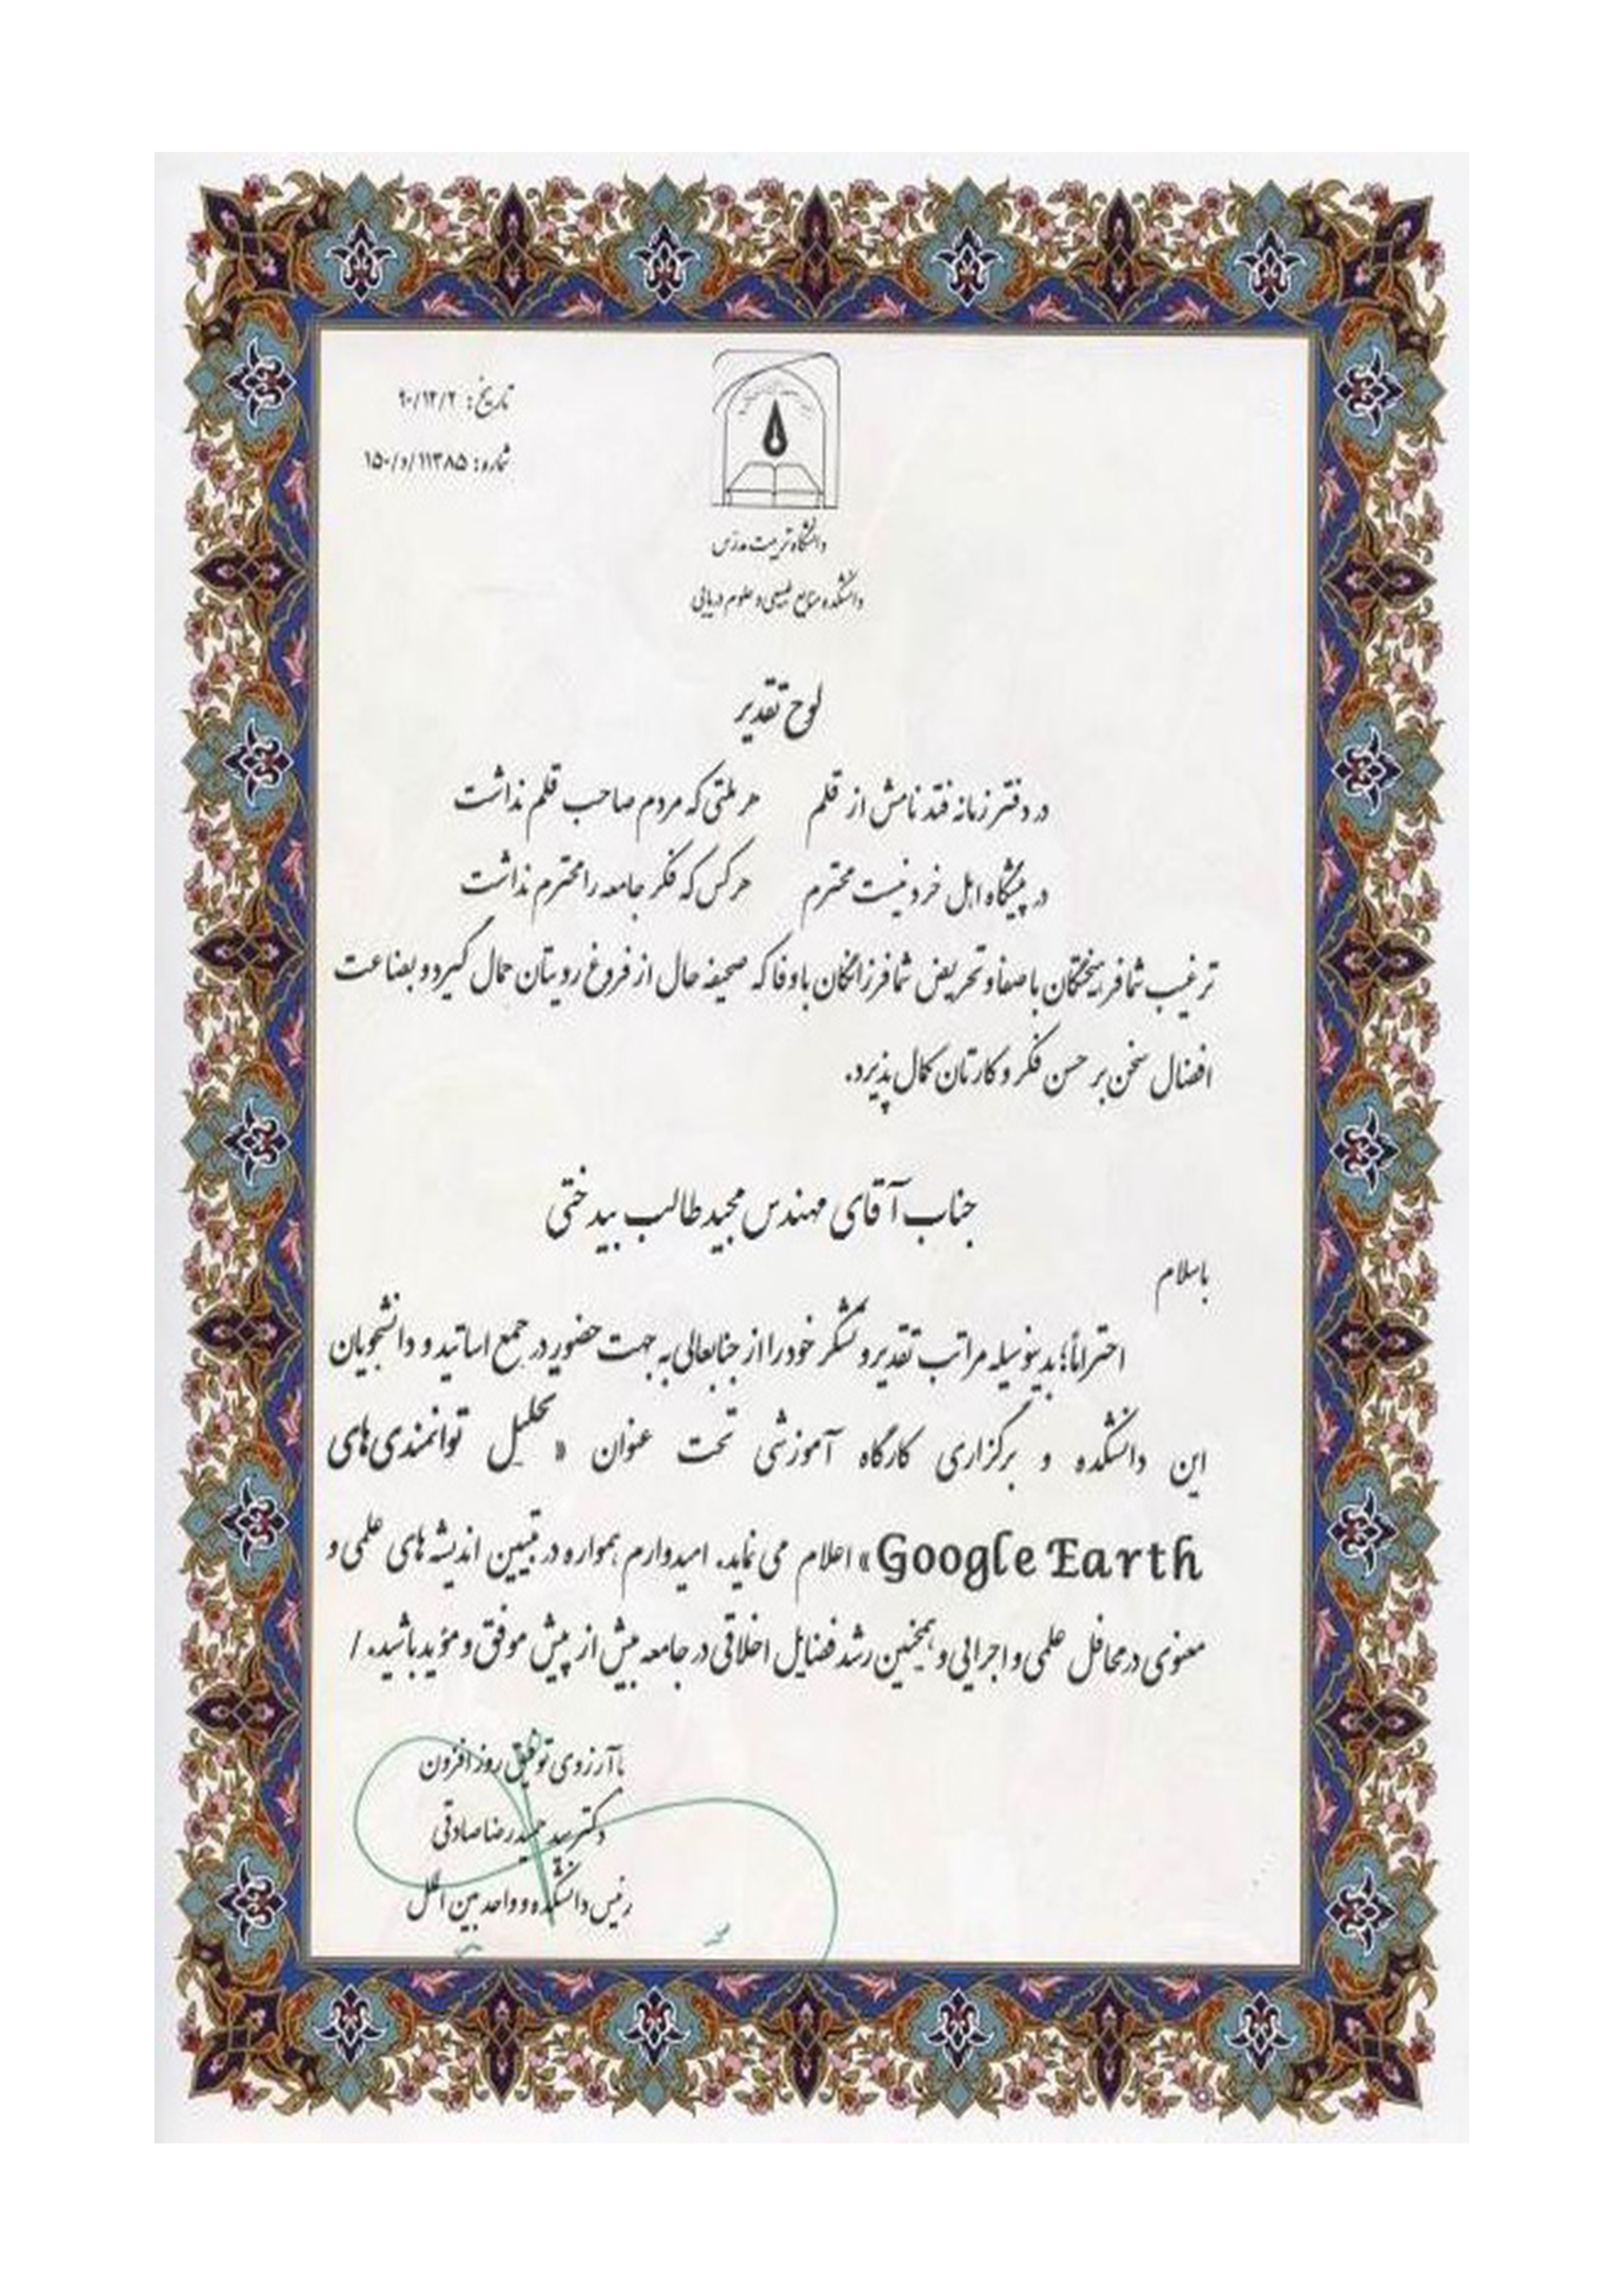 تاریخ: ۹۰/۱۲/۲
شماره: ۱۵۰/د/۱۱۳۸۵
دانشگاه تربیت مدرس
دانشکده منابع طبیعی و علوم دریائی
لوح تقدیر
در دفتر زمانه فتد نامش از قلم هر ملتی که مردم صاحب قلم نداشت
در پیشگاه اهل خرد نیست محترم هر کس که فکر جامعه را محترم نداشت
ترغیب شما فرهیختگان با صفا و تحریض شما فرزانگان با وفا که صحیفه حال از فروغ رویتان جمال گیرد و بضاعت
افضال سخن بر حسن فکر و کارتان کمال پذیرد.
جناب آقای مهندس مجید طالب بیدختی
با سلام
احتراماً؛ بدینوسیله مراتب تقدیر و تشکر خود را از جنابعالی به جهت حضور در جمع اساتید و دانشجویان
این دانشکده و برگزاری کارگاه آموزشی تحت عنوان « تحلیل توانمندی های
Google Earth» اعلام می نماید. امیدوارم همواره در تبیین اندیشه های علمی و
معنوی در محافل علمی و اجرایی و همچنین رشد فضایل اخلاقی در جامعه بیش از پیش موفق و مؤید باشید. /
با آرزوی توفیق روز افزون
دکتر سید حمیدرضا صادقی
رئیس دانشکده و واحد بین الملل